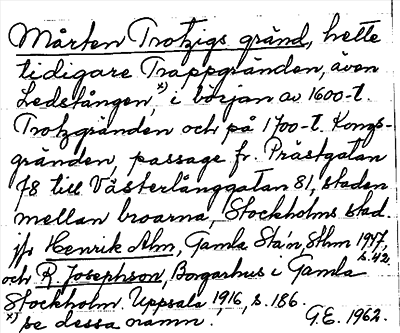 Mårten Trotzigs gränd, hette
tidigare Trappgränden, även
Ledstången,*) i början av 1600-t.
Trotzgränden och på 1700-t. Kungs-
gränden, passage fr. Prästgatan
78 till Västerlånggatan 81, staden
mellan broarna, Stockholms stad.
jfr Henrik Alm, Gamla Sta'n, Sthlm 1947,
s. 42
och R. Josephson, Borgarhus i Gamla
Stockholm. Uppsala 1916, s. 186.
*) se dessa namn. G.E. 1962.